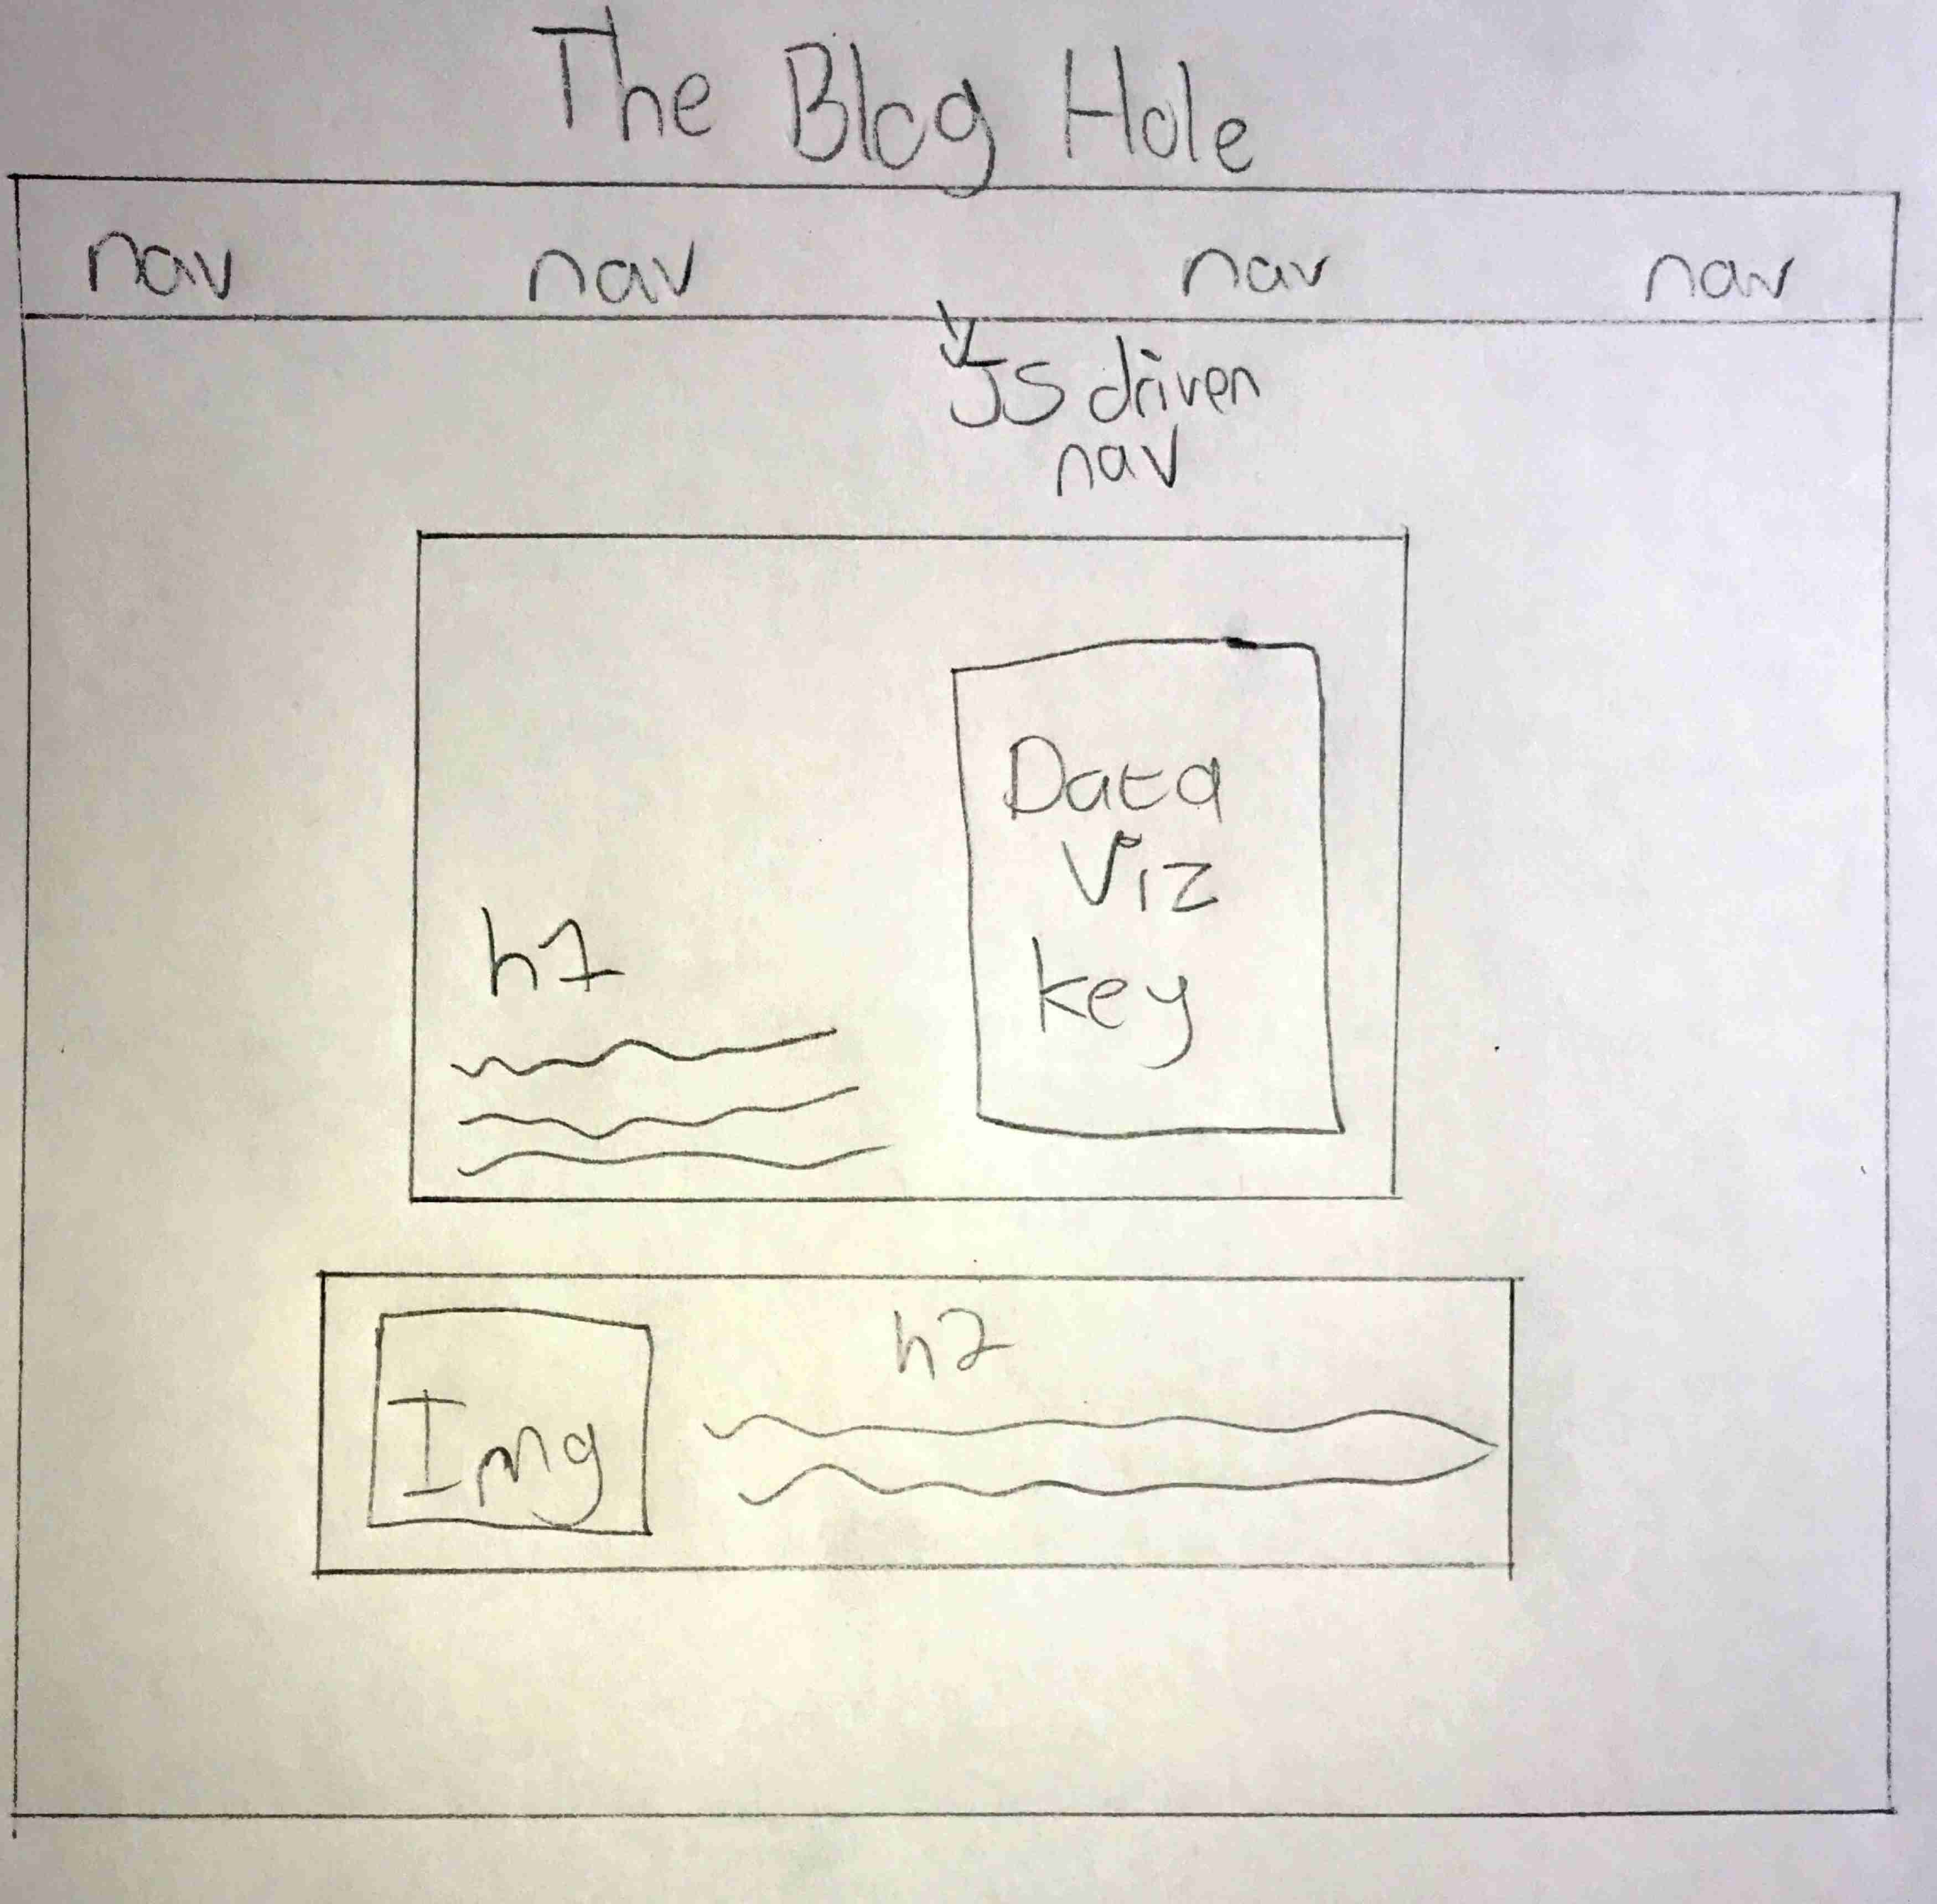 The Blog Hole
nav nav nav nav
JS driven
nav
Data
Viz
key
h1
h2
Img